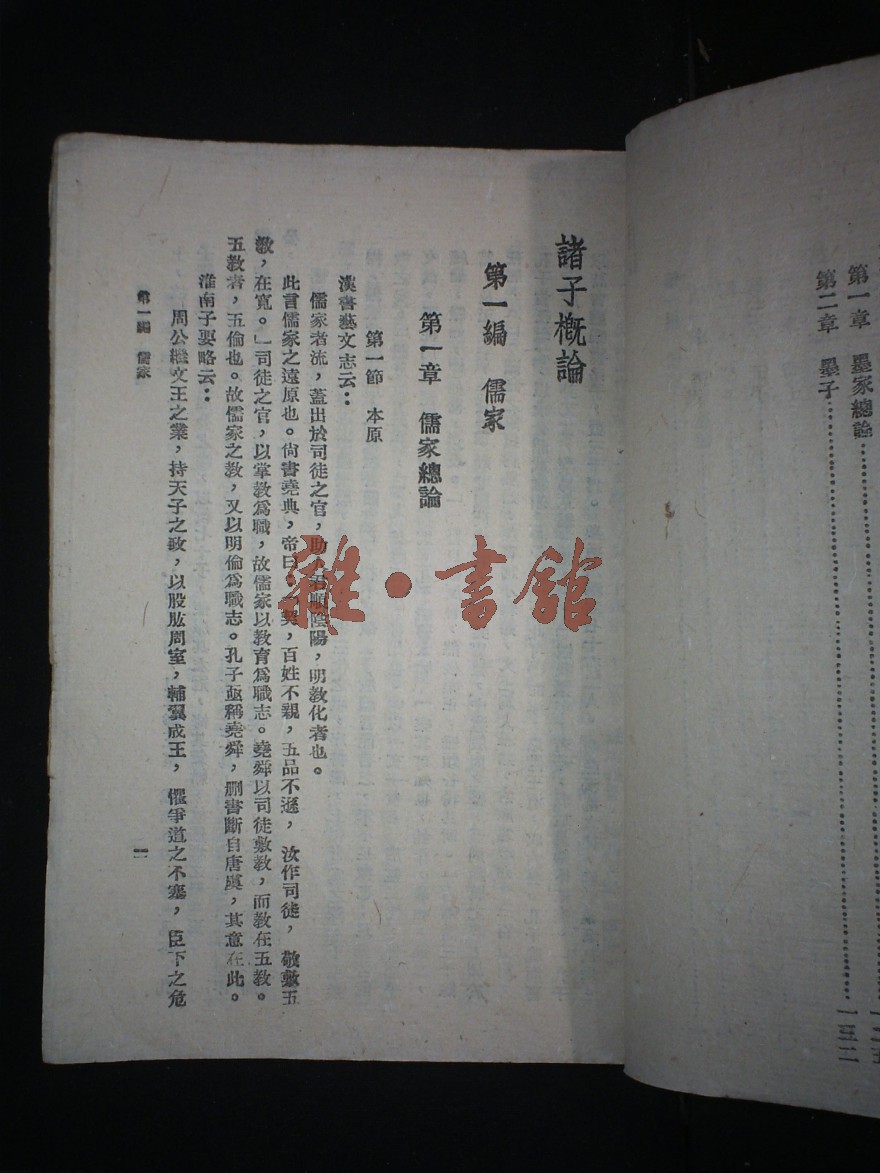 第一章　墨家總論……一二五
第二章　墨子……一三二
諸子概論
第一編　儒家
第一章　儒家總論
第一節　本原
漢書藝文志云：
儒家者流，蓋出於司徒之官，助人君順陰陽，明教化者也。
此言儒家之遠原也。尚書堯典，帝曰：契，百姓不親，五品不遜，汝作司徒，敬敷五
教，在寬。」司徒之官，以掌教爲職，故儒家以教育爲職志。堯舜以司徒敷教，而教在五教。
五教者，五倫也。故儒家之教，又以明倫爲職志。孔子亟稱堯舜，刪書斷自唐虞，其意在此。
淮南子要略云：
周公繼文王之業，持天子之政，以股肱周室，輔翼成王，懼爭道之不塞，臣下之危
第一編　儒家
一
雜·書館